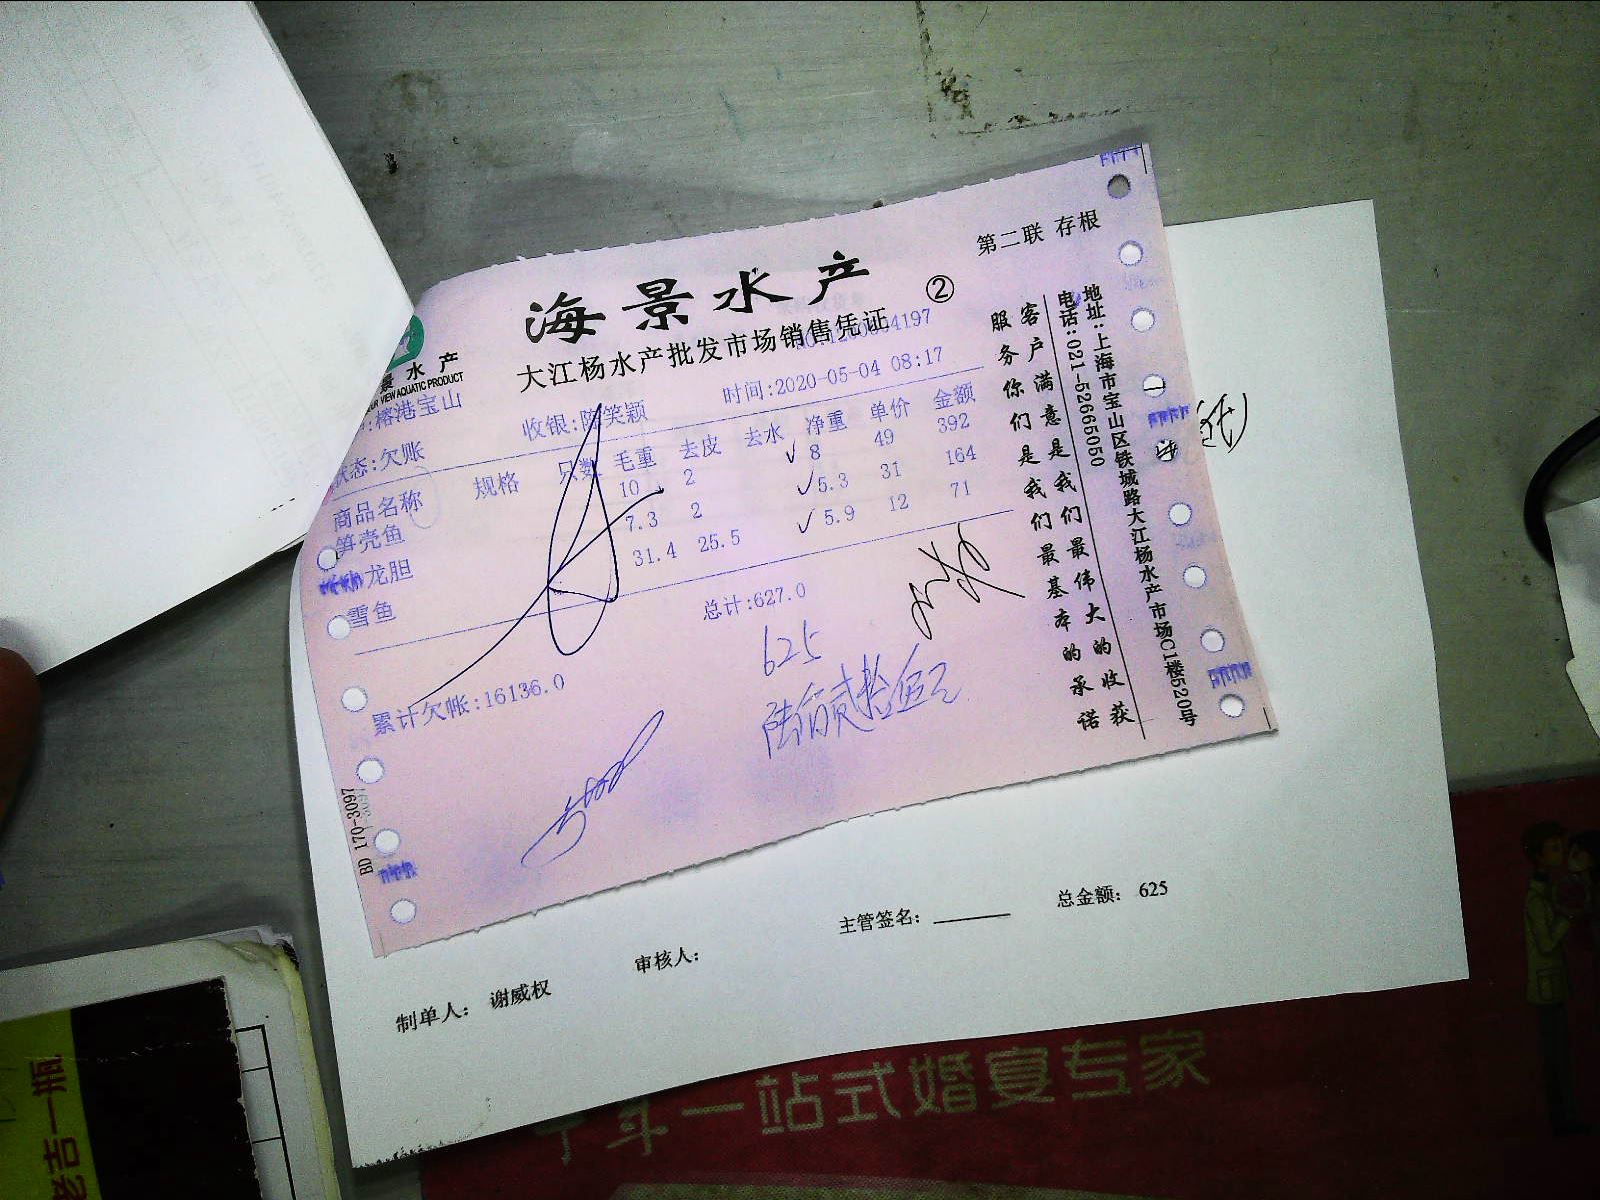 第二联 存根
海景水产
②
大江杨水产批发市场销售凭证
景水产
VIEW AQUATIC PRODUCT
榕港宝山
收银:陈笑颖
时间:2020-05-04 08:17
状态:欠账
商品名称 规格 只数 毛重 去皮 去水 净重 单价 金额
笋壳鱼 10 2 8 49 392
龙胆 7.3 2 5.3 31 164
雪鱼 31.4 25.5 5.9 12 71
总计:627.0
625
陆佰贰拾伍元
累计欠帐:16136.0
客户满意是我们最伟大的收获
服务你们是我们最基本的承诺
地址:上海市宝山区铁城路大江杨水产市场C1楼520号
电话:021-52665050
BD 170-3097
制单人: 谢威权
审核人:
主管签名:
总金额: 625
一站式婚宴专家
老吉一瓶